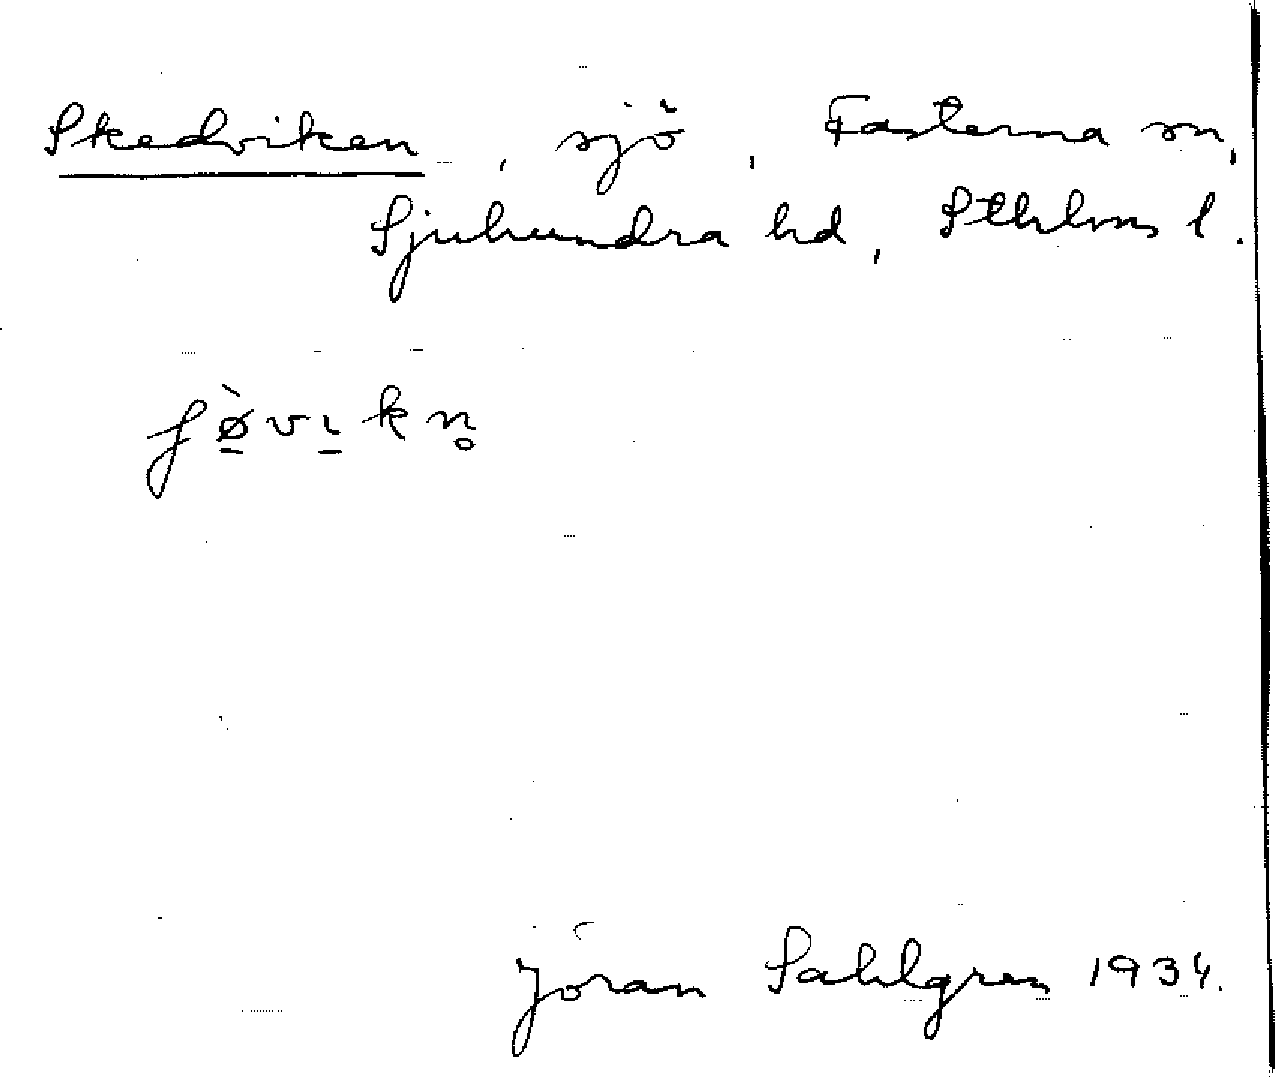 Skedviken, sjö, Fasterna sn,
Sjuhundra hd, Sthlms l.
ʃø̠̀vı̠kn̥
Jöran Sahlgren 1934.